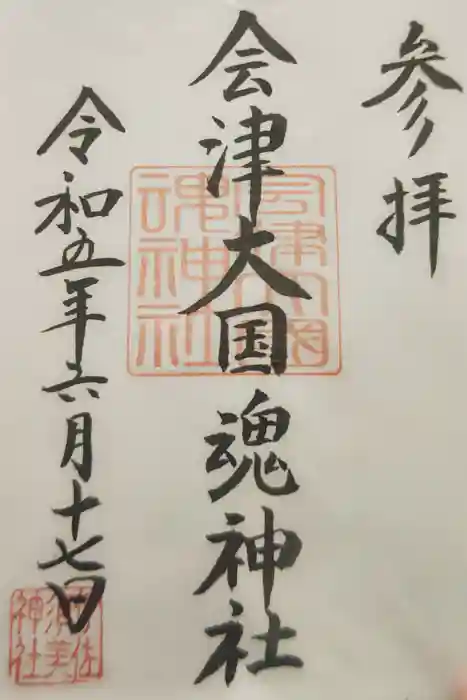 参拝
会津大国魂神社
令和五年六月十七日
会津大国魂神社